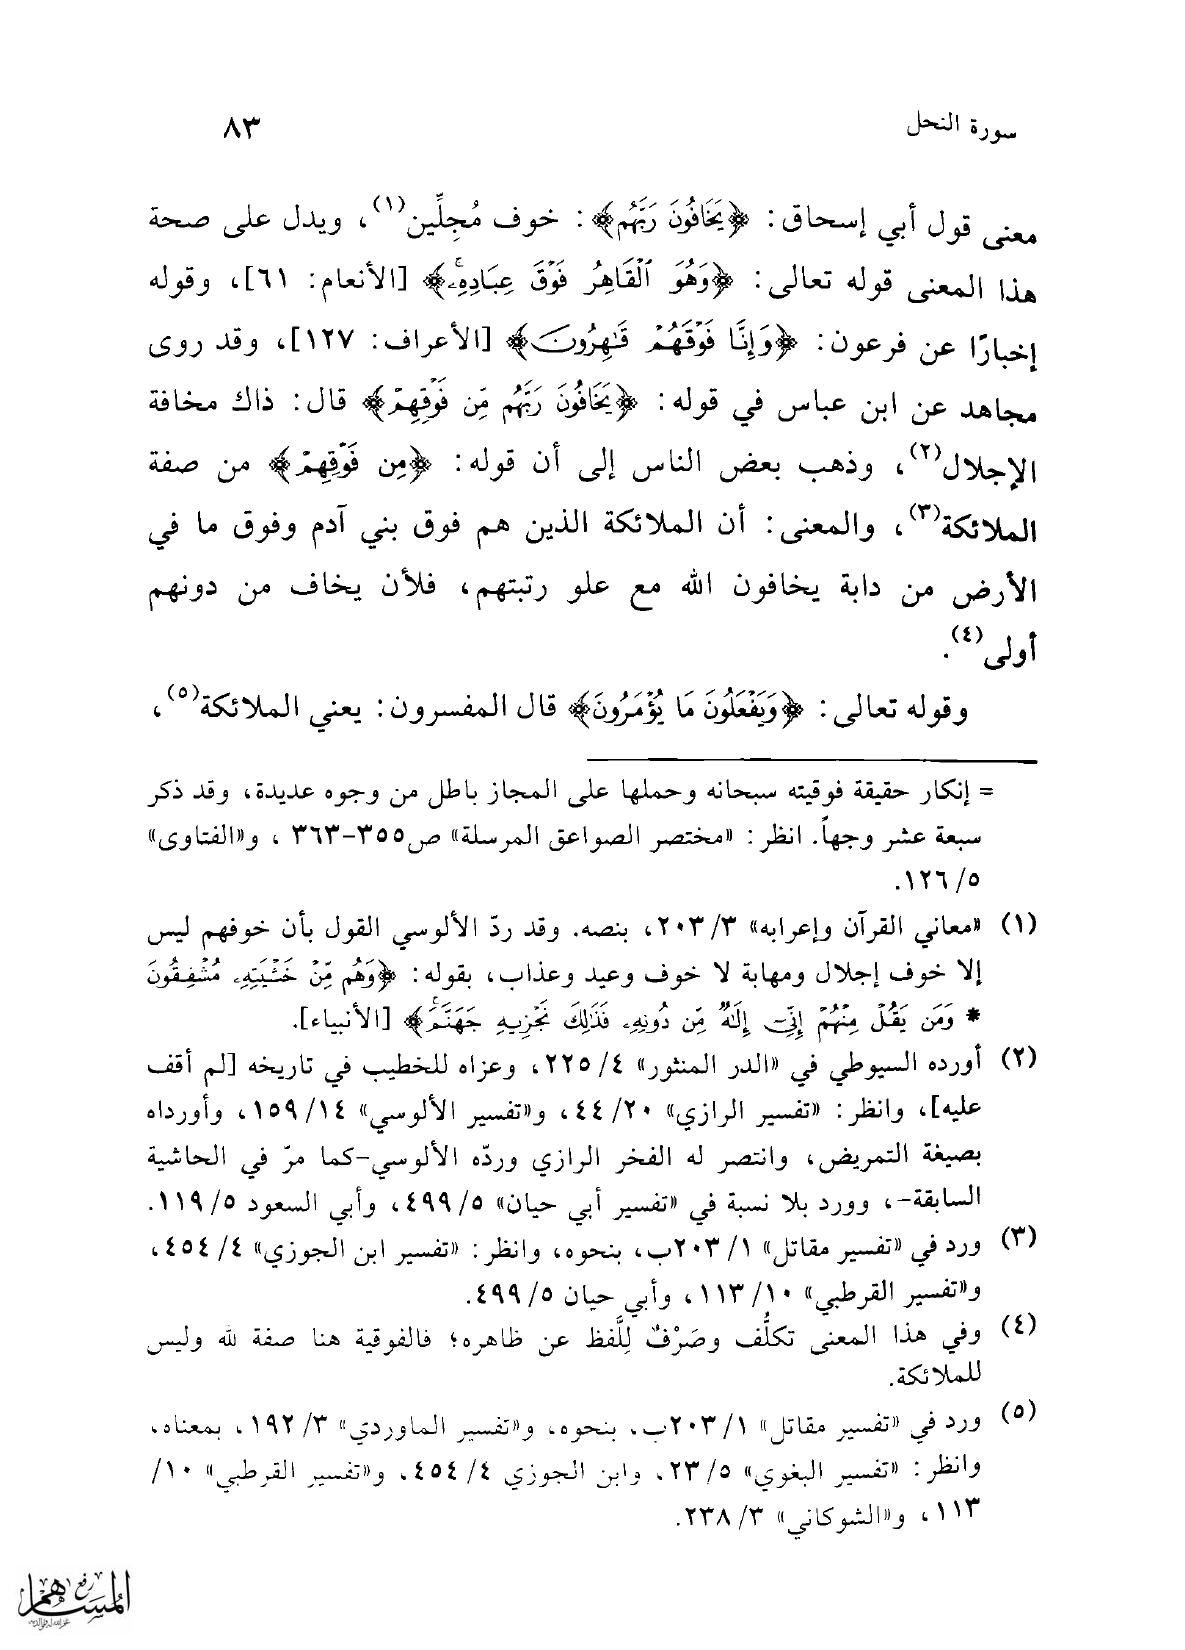 سورة النحل ٨٣
معنى قول أبي إسحاق: ﴿يَخَافُونَ رَبَّهُم﴾: خوف مُجِلِّين(١)، ويدل على صحة
هذا المعنى قوله تعالى: ﴿وَهُوَ الْقَاهِرُ فَوْقَ عِبَادِهِ﴾ [الأنعام: ٦١]، وقوله
إخبارًا عن فرعون: ﴿وَإِنَّا فَوْقَهُمْ قَاهِرُونَ﴾ [الأعراف: ١٢٧]، وقد روى
مجاهد عن ابن عباس في قوله: ﴿يَخَافُونَ رَبَّهُم مِّن فَوْقِهِمْ﴾ قال: ذاك مخافة
الإجلال(٢)، وذهب بعض الناس إلى أن قوله: ﴿مِن فَوْقِهِمْ﴾ من صفة
الملائكة(٣)، والمعنى: أن الملائكة الذين هم فوق بني آدم وفوق ما في
الأرض من دابة يخافون الله مع علو رتبتهم، فلأن يخاف من دونهم
أولى(٤).
وقوله تعالى: ﴿وَيَفْعَلُونَ مَا يُؤْمَرُونَ﴾ قال المفسرون: يعني الملائكة(٥)،
= إنكار حقيقة فوقيته سبحانه وحملها على المجاز باطل من وجوه عديدة، وقد ذكر
سبعة عشر وجهاً. انظر: «مختصر الصواعق المرسلة» ص٣٥٥-٣٦٣ ، و«الفتاوى»
٥/ ١٢٦.
(١) «معاني القرآن وإعرابه» ٣/ ٢٠٣، بنصه. وقد ردّ الألوسي القول بأن خوفهم ليس
إلا خوف إجلال ومهابة لا خوف وعيد وعذاب، بقوله: ﴿وَهُم مِّنْ خَشْيَتِهِ مُشْفِقُونَ
* وَمَن يَقُلْ مِنْهُمْ إِنِّي إِلَهٌ مِّن دُونِهِ فَذَلِكَ نَجْزِيهِ جَهَنَّمَ﴾ [الأنبياء].
(٢) أورده السيوطي في «الدر المنثور» ٤/ ٢٢٥، وعزاه للخطيب في تاريخه [لم أقف
عليه]، وانظر: «تفسير الرازي» ٢٠/ ٤٤، و«تفسير الألوسي» ١٤/ ١٥٩، وأورداه
بصيغة التمريض، وانتصر له الفخر الرازي وردّه الألوسي-كما مرّ في الحاشية
السابقة-، وورد بلا نسبة في «تفسير أبي حيان» ٥/ ٤٩٩، وأبي السعود ٥/ ١١٩.
(٣) ورد في «تفسير مقاتل» ١/ ٢٠٣ب، بنحوه، وانظر: «تفسير ابن الجوزي» ٤/ ٤٥٤،
و«تفسير القرطبي» ١٠/ ١١٣، وأبي حيان ٥/ ٤٩٩.
(٤) وفي هذا المعنى تكلُّف وصَرْفٌ لِلَّفظ عن ظاهره؛ فالفوقية هنا صفة لله وليس
للملائكة.
(٥) ورد في «تفسير مقاتل» ١/ ٢٠٣ب، بنحوه، و«تفسير الماوردي» ٣/ ١٩٢، بمعناه،
وانظر: «تفسير البغوي» ٥/ ٢٣، وابن الجوزي ٤/ ٤٥٤، و«تفسير القرطبي» ١٠/
١١٣، و«الشوكاني» ٣/ ٢٣٨.